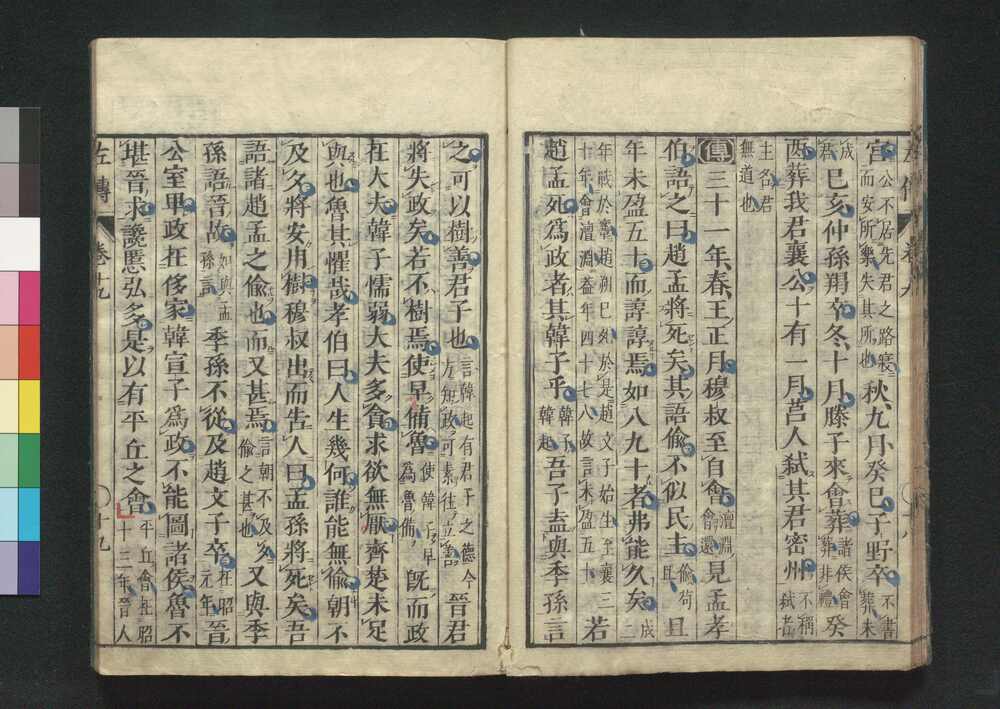 宮公不居先君之路寢而安所樂失其所也秋九月癸巳子野卒不書葬未
成君巳亥仲孫羯卒冬十月滕子來會葬諸侯會葬非禮癸
酉葬我君襄公十有一月莒人弑其君密州不稱弑者
主名君無道也
傳三十一年春王正月穆叔至自會澶淵會還見孟孝
伯語之曰趙孟將死矣其語偷不似民主偷苟且且
年未盈五十而諄諄焉如八九十者弗能久矣成二
年戰於鞌趙朔已死於是趙文子始生至襄三十年會澶淵蓋年四十七八故言未盈五十若
趙孟死爲政者其韓子乎韓子韓起吾子盍與季孫言
之可以樹善君子也言韓起有君子之德今方知政可素往立善晉君
將失政矣若不樹焉使早備魯使韓子早爲魯備既而政
在大夫韓子懦弱大夫多貪求欲無厭齊楚未足
與也魯其懼哉孝伯曰人生幾何誰能無偷朝不
及夕將安用樹穆叔出而告人曰孟孫將死矣吾
語諸趙孟之偷也而又甚焉言朝不及夕偷之甚也又與季
孫語晉故如與孟孫言季孫不從及趙文子卒在昭元年晉
公室卑政在侈家韓宣子爲政不能圖諸侯魯不
堪晉求讒慝弘多是以有平丘之會平丘會在昭十三年晉人
左傳 卷十九 十九